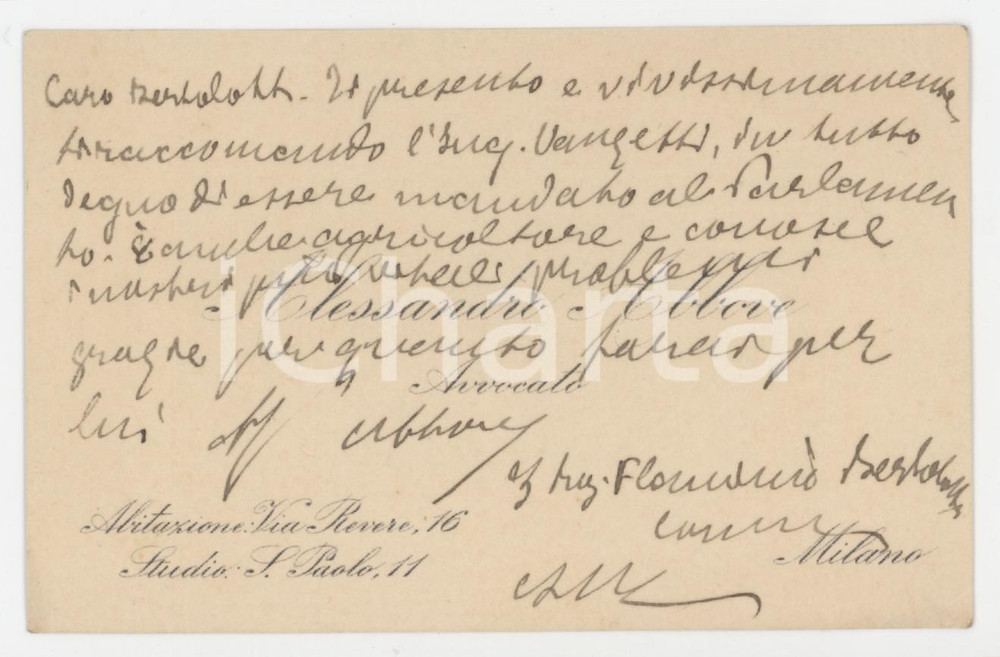 Caro Bertolotti. Ti presento e vivissimamente
ti raccomando l'Ing. Vanzetti, in tutto
degno di essere mandato al Parlamen
to. È anche agricoltore e conosce
i nostri problemi
Alessandro Abbove
grazie per quanto farai per
Avvocato
lui Aff Abbove
Ing. Flaminio Bertolotti
Abitazione: Via Revere, 16
Milano
Studio: S. Paolo, 11
iCharta